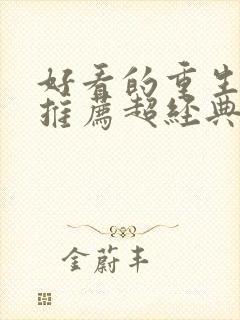 好看的重生
推薦超經典
金蔚丰